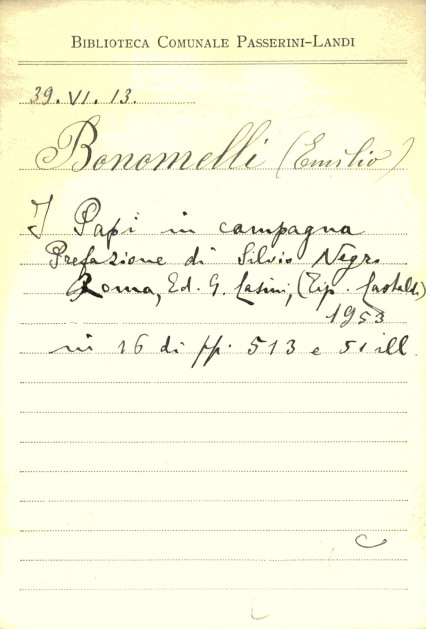 BIBLIOTECA COMUNALE PASSERINI-LANDI
39. VI. 13.
Bonomelli (Emilio)
I Papi in campagna
Prefazione di Silvio Negro
Roma, Ed. G. Casini, (Tip. Castaldi)
1953
in 16 di pp. 513 e 51 ill.